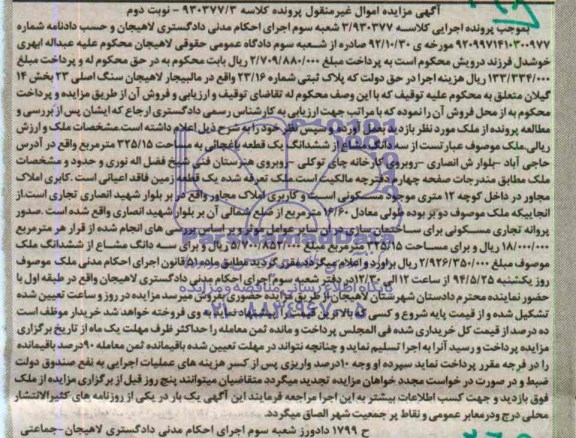 آگهی مزایده اموال غیرمنقول پرونده کلاسه ۹۳۰۳۷۷/۳ - نوبت دوم
بموجب پرونده اجرایی کلاسه ۳/۹۳۰۳۷۷ شعبه سوم اجرای احکام مدنی دادگستری لاهیجان و حسب دادنامه شماره
۹۲۰۹۹۷۱۴۱۰۳۰۰۹۷۷ مورخه ی ۹۲/۱۰/۳۰ صادره از شعبه سوم دادگاه عمومی حقوقی لاهیجان محکوم علیه عبداله ابهری
خوشدل فرزند درویش محکوم است به پرداخت مبلغ ۲/۷۰۹/۸۸۰/۰۰۰ ریال بابت محکوم به در حق محکوم له و پرداخت مبلغ
۱۳۳/۳۳۴/۰۰۰ ریال هزینه اجرا در حق دولت که پلاک ثبتی شماره ۲۳/۱۶ واقع در مالبیجار لاهیجان سنگ اصلی ۲۳ بخش ۱۴
گیلان متعلق به محکوم علیه توقیف که با این وصف محکوم له تقاضای توقیف و ارزیابی و فروش آن از طریق مزایده و پرداخت
محکوم به از محل فروش آن را نموده که با مراتب جهت ارزیابی به کارشناس رسمی دادگستری ارجاع که ایشان پس از بررسی و
مطالعه پرونده از ملک مورد نظر بازدید بعمل آورده و سپس نظر خود را به شرح ذیل اعلام داشته است.مشخصات ملک و ارزش
ریالی.ملک موصوف عبارتست از سه دانگ مشاع از ششدانگ یک قطعه باغچائی به مساحت ۳۲۵/۱۵ مترمربع واقع در آدرس
حاجی آباد -بلوار ش انصاری -روبروی کارخانه چای توکلی -روبروی هنرستان فنی شیخ فضل اله نوری و حدود و مشخصات
ملک مطابق مندرجات صفحه چهارم دفترچه مالکیت است.ملک تعرفه شده یک قطعه زمین فاقد اعیانی است .کابری املاک
مجاور در داخل کوچه ۱۲ متری موجود مسکونی است و کاربری املاک مجاور واقع در بر بلوار شهید انصاری تجاری است.از
انجاییکه ملک موصوف دو بر بوده طولی معادل ۱۶/۶۰ مترمربع از ضلع شمالی آن بر بلوار شهید انصاری واقع شده است .صدور
پروانه تجاری مسکونی برای ساختمان سازی در آن سایر عوامل موثر و بر اساس بررسی های انجام شده از قرار هر مترمربع
۱۸/۰۰۰/۰۰۰ ریال و برای مساحت ۳۲۵/۱۵ مترمربع مبلغ ۵/۷۰۰/۸۵۲/۰۰۰ ریال و برای سه دانگ مشاع از ششدانگ ملک
موصوف مبلغ ۲/۹۲۶/۳۵۰/۰۰۰ ریال براورد و اعلام میگردد.مقرر گردید مطابق ماده ۵۱ قانون اجرای احکام مدنی ملک موصوف
روز یکشنبه ۹۴/۵/۲۵ از ساعت ۱۲ الی ۱۲/۳۰ در دفتر شعبه سوم اجرای احکام مدنی دادگستری لاهیجان واقع در طبقه اول با
حضور نماینده محترم دادستان شهرستان لاهیجان از طریق مزایده حضوری بفروش میرسد مزایده در روز و ساعت تعیین شده
تشکیل شده و از قیمت پایه شروع و کسی که بالاترین قیمت را پیشنهاد نماید به وی فروخته خواهد شد خریدار موظف است
ده درصد از قیمت کل خریداری شده فی المجلس پرداخت و مانده ثمن معامله را حداکثر ظرف مهلت یک ماه از تاریخ برگزاری
مزایده پرداخت و رسید آنرا به اجرا تسلیم نماید و چنانچه نتواند در مهلت تعیین شده باقیمانده ثمن معامله ۹۰درصد باقیمانده
را در فرجه مقرر پرداخت نماید سپرده او وجه ۱۰درصد واریزی پس از کسر هزینه های عملیات اجرایی به نفع صندوق دولت
ضبط و در صورت در خواست مجدد خواهان مزایده تجدید میگردد متقاضیان میتوانند پنج روز قبل از برگزاری مزایده از ملک
فوق بازدید و جهت کسب اطلاعات بیشتر به این اجرا مراجعه فرمایند این آگهی یک بار در یکی از روزنامه های کثیرالانتشار
محلی درج ودرمعابر عمومی و نقاط پر جمعیت شهر الصاق میگردد.
ح ۱۷۹۹ دادورز شعبه سوم اجرای احکام مدنی دادگستری لاهیجان-جماعتی
پایگاه اطلاع رسانی مناقصه و مزایده